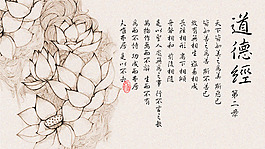 道德經
第二章
天下皆知美之為美 斯惡已
皆知善之為善 斯不善已
故有無相生 難易相成
長短相形 高下相傾
音聲相和 前後相隨
是以聖人處無為之事 行不言之教
萬物作焉而不辭 生而不有
為而不恃 功成而弗居
夫唯弗居 是以不去